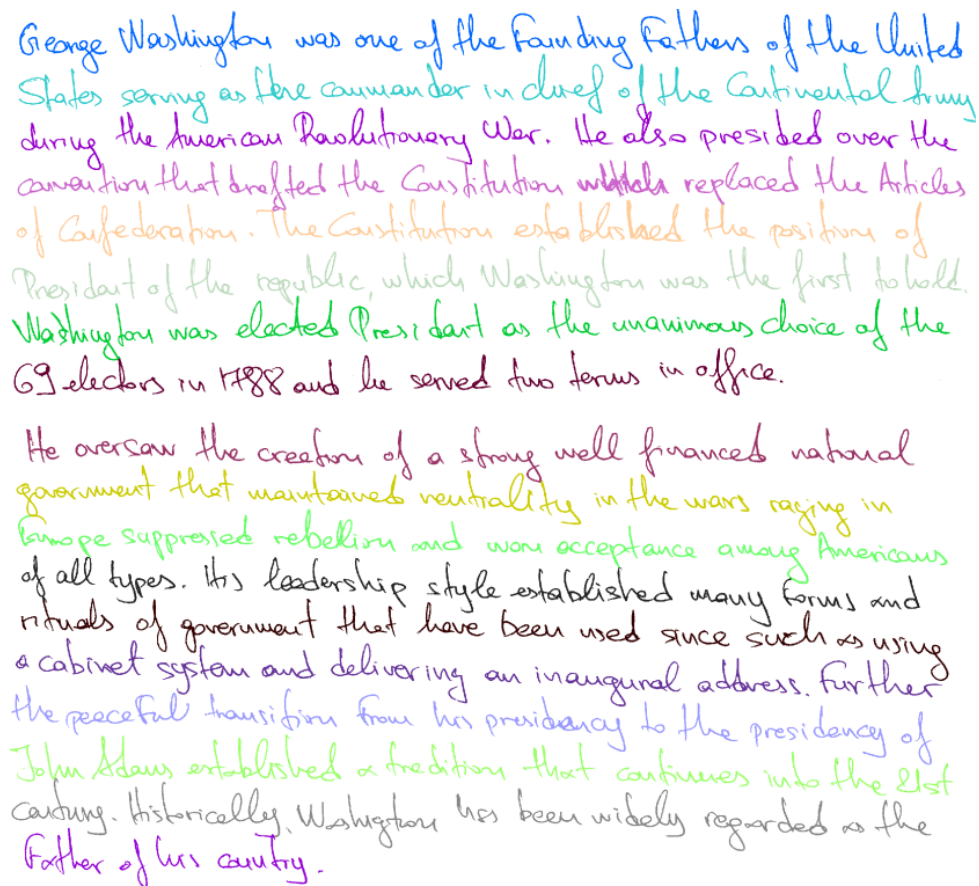 George Washington was one of the Founding Fathers of the United
States serving as the commander in chief of the Continental Army
during the American Revolutionary War. He also presided over the
convention that drafted the Constitution which replaced the Articles
of Confederation. The Constitution established the position of
President of the republic, which Washington was the first to hold.
Washington was elected President as the unanimous choice of the
69 electors in 1788 and he served two terms in office.
He oversaw the creation of a strong well financed national
government that maintained neutrality in the wars raging in
Europe suppressed rebellion and won acceptance among Americans
of all types. His leadership style established many forms and
rituals of government that have been used since such as using
a cabinet system and delivering an inaugural address. Further
the peaceful transition from his presidency to the presidency of
John Adams established a tradition that continues into the 21st
century. Historically, Washington has been widely regarded as the
Father of his country.